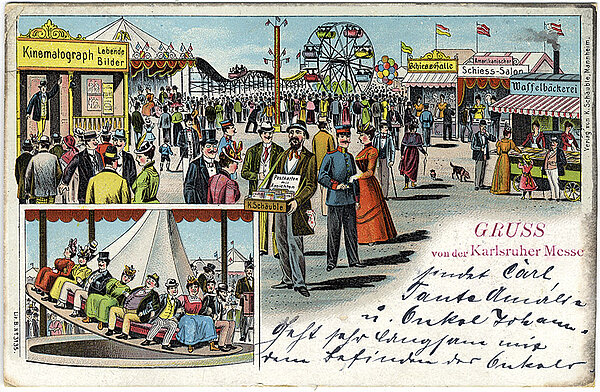 Kinematograph
Lebende
Bilder
Schiesshalle
Amerikanischer
Schiess-Salon
Waffelbäckerei
Postkarten
Ansichten
K. Schäuble
Verlag von K. Schäuble, Mannheim.
GRUSS
von der Karlsruher Messe
sendet Carl
Tante Amalie
u. Onkel Johann
Geht sehr langsam mit
dem Befinden der Onkels